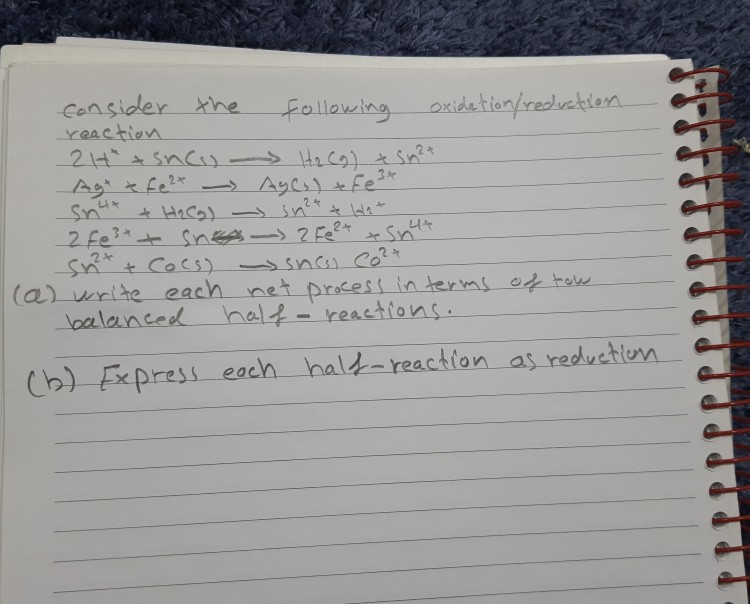 consider the following oxidation/reduction
reaction
2H⁺ + Sn(s) ⟶ H₂(g) + Sn²⁺
Ag⁺ + Fe²⁺ ⟶ Ag(s) + Fe³⁺
Sn⁴⁺ + H₂(g) ⟶ Sn²⁺ +
2Fe³⁺ + Sn ⟶ 2Fe²⁺ + Sn⁴⁺
Sn²⁺ + Co(s) ⟶ Sn(s) Co²⁺
(a) write each net process in terms of tow
balanced half-reactions.
(b) Express each half-reaction as reduction